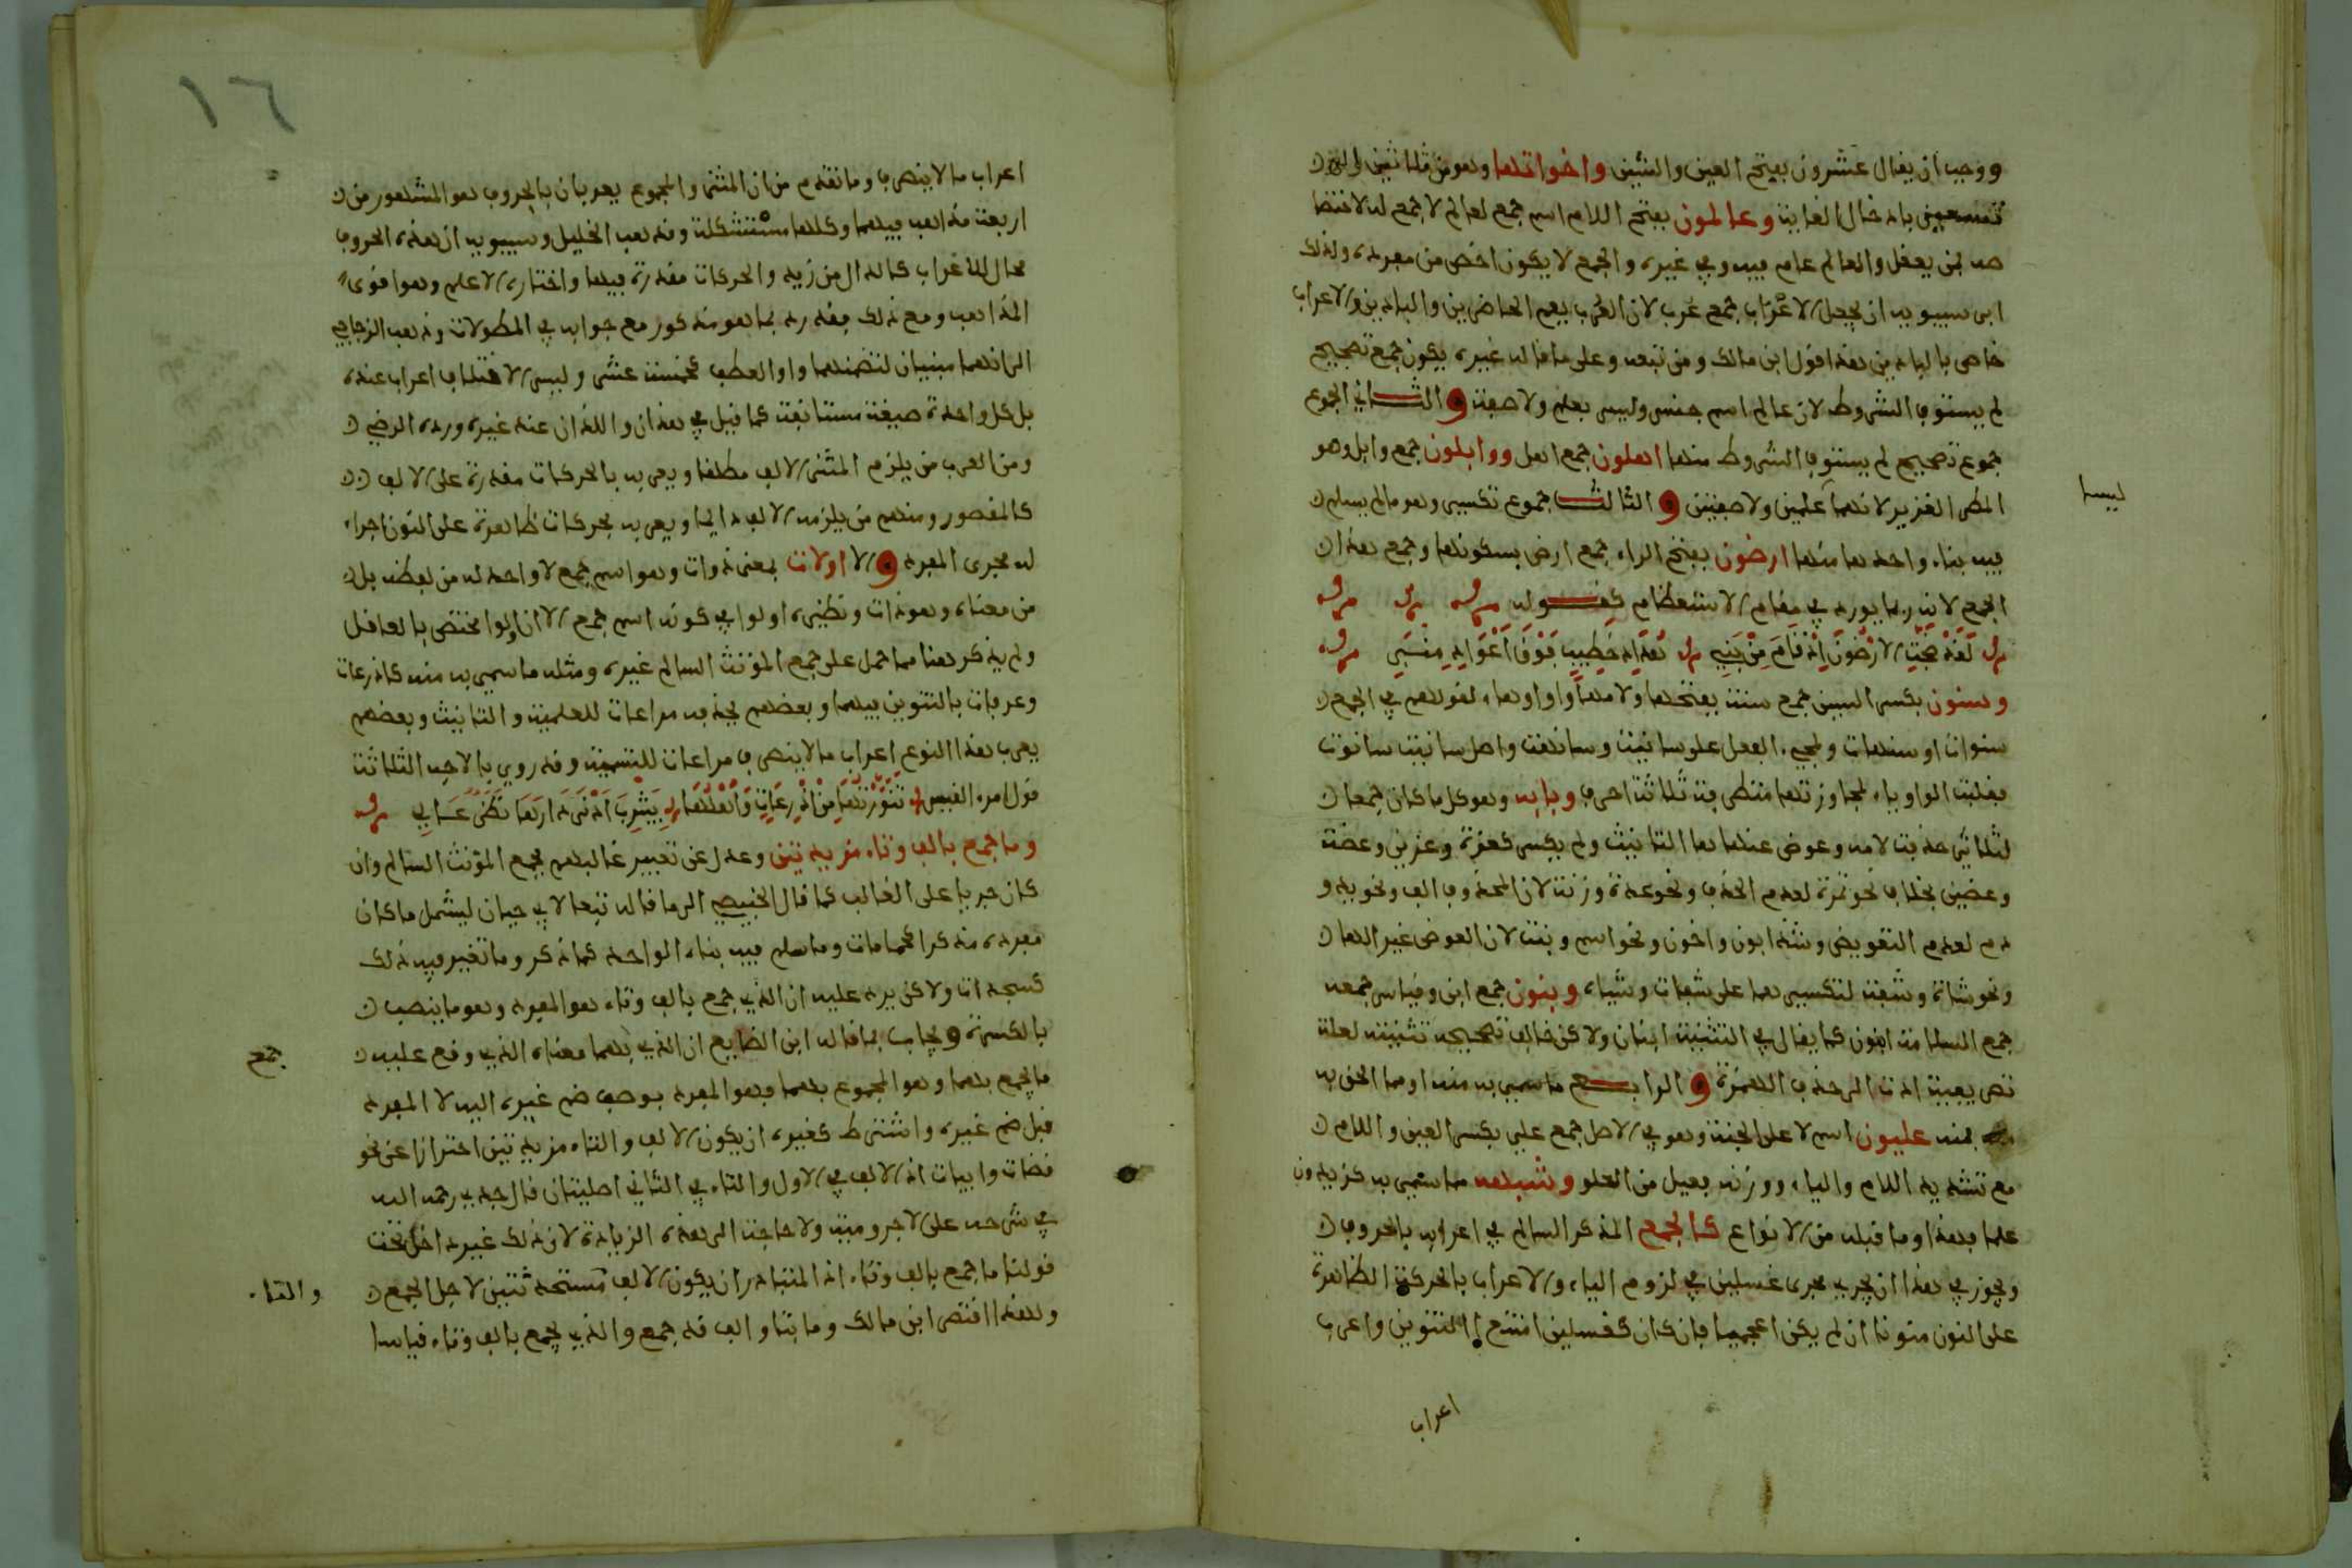 ووجب ان يقال عشرون بفتح العين والشين واخواتها وهو من ثلاثين الى
تسعين بادخال الغاية وعالمون بفتح اللام اسم جمع لعالم لا جمع له لاختصا
صه بمن يعقل والعالم عام فيه وفي غيره والجمع لا يكون اخص من مفرده ولذلك
ابى سيبويه ان يجعل الاعراب جمع عرب لان العرب يعم الحاضرين والبادين والاعراب
خاص بالبادين هذا قول ابن مالك ومن تبعه وعلى ما قاله غيره يكون جمع تصحيح
لم يستوف الشروط لان عالم اسم جنس وليس بعلم ولا صفة والثاني الجموع
جموع تصحيح لم يستوف الشروط منها اهلون جمع اهل ووابلون جمع وابل وهو
المطر الغزير لانهما علمين ولا صفتين والثالث جموع تكسير وهو ما لم يسلم
ليسا
فيه بناء واحدها منها ارضون بفتح الراء جمع ارض بسكونها وجمع هذا
الجمع لانه ربما يورد في مقام الاستعظام كقوله
لقد ضجت الارضون اذ قام من بني هداد خطيب فوق اعواد منبر
وسنون بكسر السين جمع سنة بفتحها ولامها واو او هاء لقولهم في الجمع
سنوات او سنهات ولمجيء الفعل على سانيت وسانهت واصل سانيت سانوت
فقلبت الواو ياء لمجاوزتها متطرفة ثلاثة احرف وبابه وهو كل ما كان جمعا
لثلاثي حذفت لامه وعوض عنها هاء التانيث ولم يكسر كعزة وعزين وعضة
وعضين بخلاف نحو تمرة لعدم الحذف ونحو عدة وزنة لان المحذوف الفاء ونحو يد و
دم لعدم التعويض وشذ ابون واخون ونحو اسم وبنت لان العوض غير الهاء
ونحو شاة وشفة لتكسيرهما على شفاه وشياه وبنون جمع ابن وقياس جمعه
جمع السلامة ابنون كما يقال في التثنية ابنان ولاكن خالف تصحيحه تثنيته لعلة
تصريفية ادت الى حذف الهمزة والرابع ما سمي به منه او مما الحق به
فمنه عليون اسم لاعلى الجنة وهو في الاصل جمع علي بكسر العين واللام
مع تشديد اللام والياء ووزنه فعيل من العلو وشبهه مما سمي به كزيدون
علما فهذا وما قبله من الانواع كالجمع المذكر السالم في اعرابه بالحروف
ويجوز في هذا ان يجري مجرى غسلين في لزوم الياء والاعراب بالحركة الظاهرة
على النون منونا ان لم يكن اعجميا فان كان كقنسرين امتنع التنوين واعرب
اعراب
١٦
اعراب ما لا ينصرف وما تقدم من ان المثنى والمجموع يعربان بالحروف هو المشهور من
اربعة مذاهب فيهما وكلها مستشكلة وذهب الخليل وسيبويه ان هذه الحروف
محال للاعراب كالدال من زيد والحركات مقدرة فيها واختاره الاعلم وهو اقوى
المذاهب ومع ذلك فقد رد بما هو مذكور مع جوابه في المطولات وذهب الزجاج
الى انهما مبنيان لتضمنهما واو العطف كخمسة عشر وليس الاختلاف اعراب عنده
بل كل واحدة صيغة مستانفة كما قيل في هذان واللذان عند غيره ورده الرضي
ومن العرب من يلزم المثنى الالف مطلقا ويعربه بالحركات مقدرة على الالف
كالمقصور ومنهم من يلزمه الالف دائما ويعربه بحركات ظاهرة على النون اجراء
له مجرى المفرد و الا اولات بمعنى ذوات وهو اسم جمع لا واحد له من لفظه بل
من معناه وهو ذات ونظيره اولوا في كونه اسم جمع الا ان اولوا مختص بالعاقل
ولم يذكر هنا مما حمل على جمع المؤنث السالم غيره ومثله ما سمي به منه كاذرعات
وعرفات بالتنوين فيهما وبعضهم يحذفه مراعات للعلمية والتانيث وبعضهم
يعرب هذا النوع اعراب ما لا ينصرف مراعات للتسمية وقد روي بالاوجه الثلاثة
قول امرء القيس تنورتها من اذرعات واهلها بيثرب ادنى دارها نظر عالي
وما جمع بالف وتاء مزيدتين وعدل عن تعبير غالبهم بجمع المؤنث السالم وان
كان جريا على الغالب كما قال الخبيصي الى ما قاله تبعا لابي حيان ليشمل ما كان
مفرده مذكرا كحمامات وما سلم فيه بناء الواحد كما ذكر وما تغير فيه ذلك
كسجدات ولاكن يرد عليه ان الذي جمع بالف وتاء هو المفرد وهو ما ينصب
بالكسرة ويجاب بما قاله ابن الضايع ان الذي بهما معناه الذي وقع عليه
جمع
ما يجمع بهما وهو المجموع بهما وهو المفرد بوصف ضم غيره اليه لا المفرد
قبل ضم غيره واشترط كغيره ان يكون الالف والتاء مزيدتين احترازا عن نحو
قضات وابيات اذ الالف في الاول والتاء في الثاني اصليتان قال جدي رحمه الله
في شرحه على الاجرومية ولا حاجة الى هذه الزيادة لان ذلك غير داخل تحت
قولنا ما جمع بالف وتاء اذ المتبادر ان يكون الالف مستحدثتين لاجل الجمع
والتاء
ولهذا اقتصر ابن مالك وما بتا والف قد جمع والذي يجمع بالف وتاء قياسا